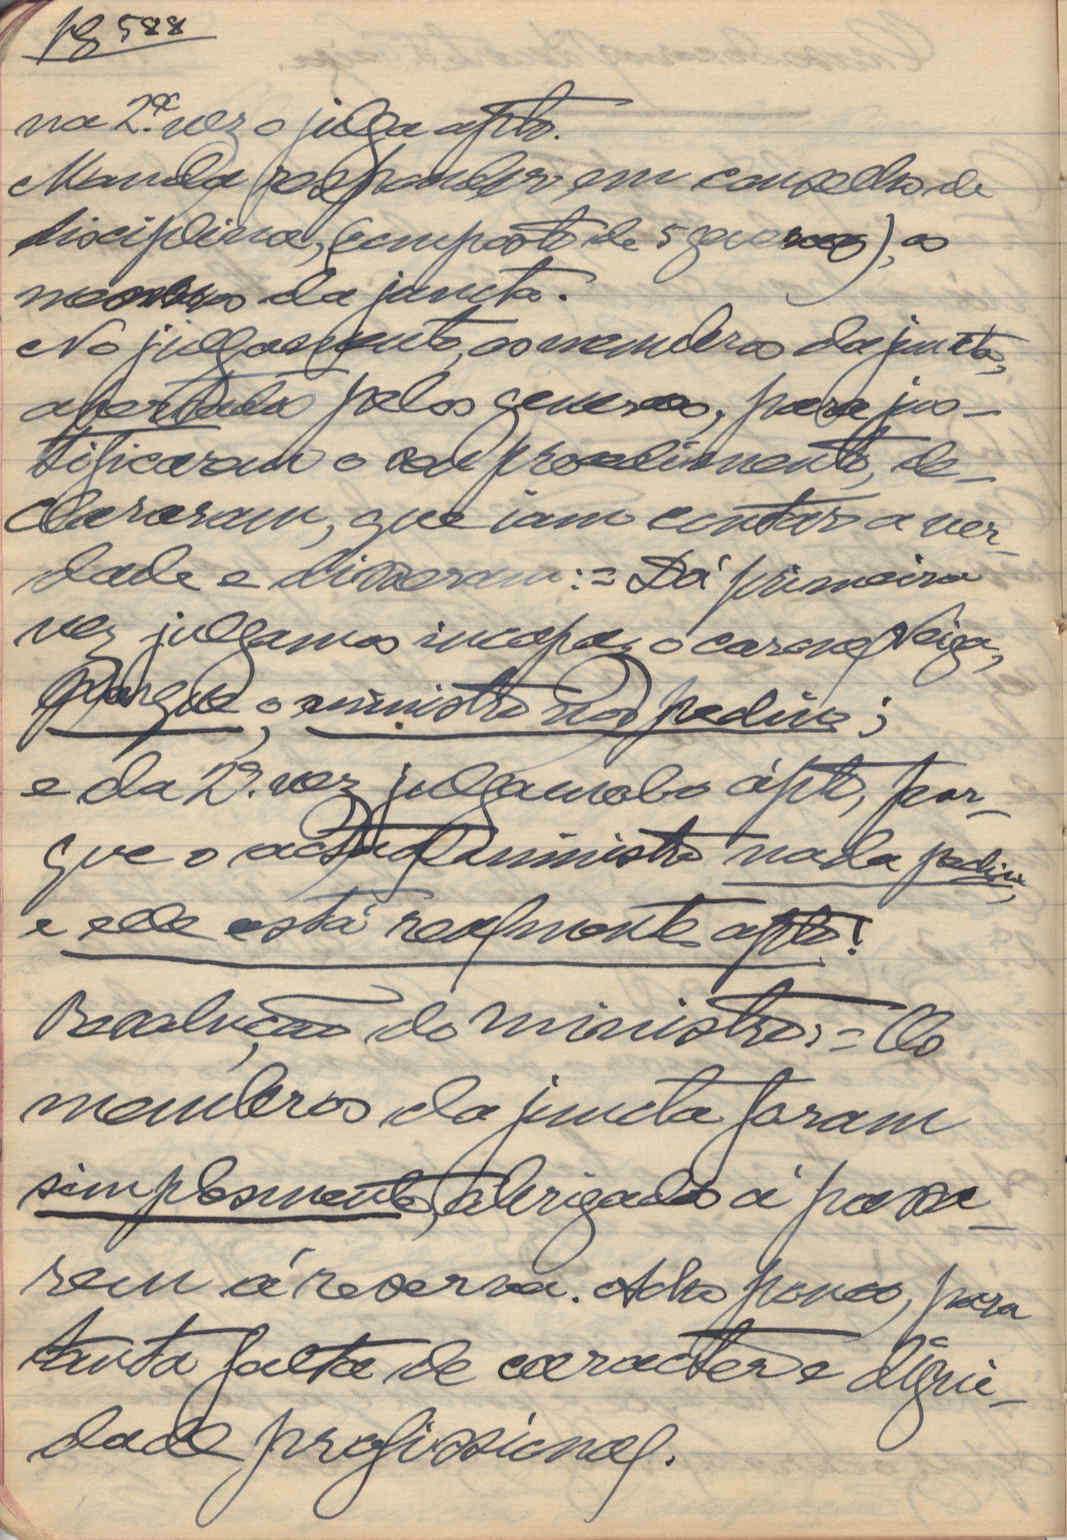 Pg 588
na 2.ª vez o julga apto.
Manda responder em conselho de
disciplina, (composto de 5 generaes), os
membros da juncta.
No julgamento, os membros da juncta,
apertados pelos generaes, para jus-
tificarem o seu procedimento, de-
clararam, que iam contar a ver-
dade e disseram:= Dá primeira
vez julgamos incapaz o coronel Veiga,
porque, o ministro nos pedira;
e da 2ª. vez julgamol-o ápto, por-
que o actual ministro nada pedira,
e elle está realmente apto!
Resolução do ministro:= Os
membros da juncta foram
simplesmente, obrigados á passa-
rem á reserva. Acho pouco, para
tanta falta de caracter e digni-
dade profissional.